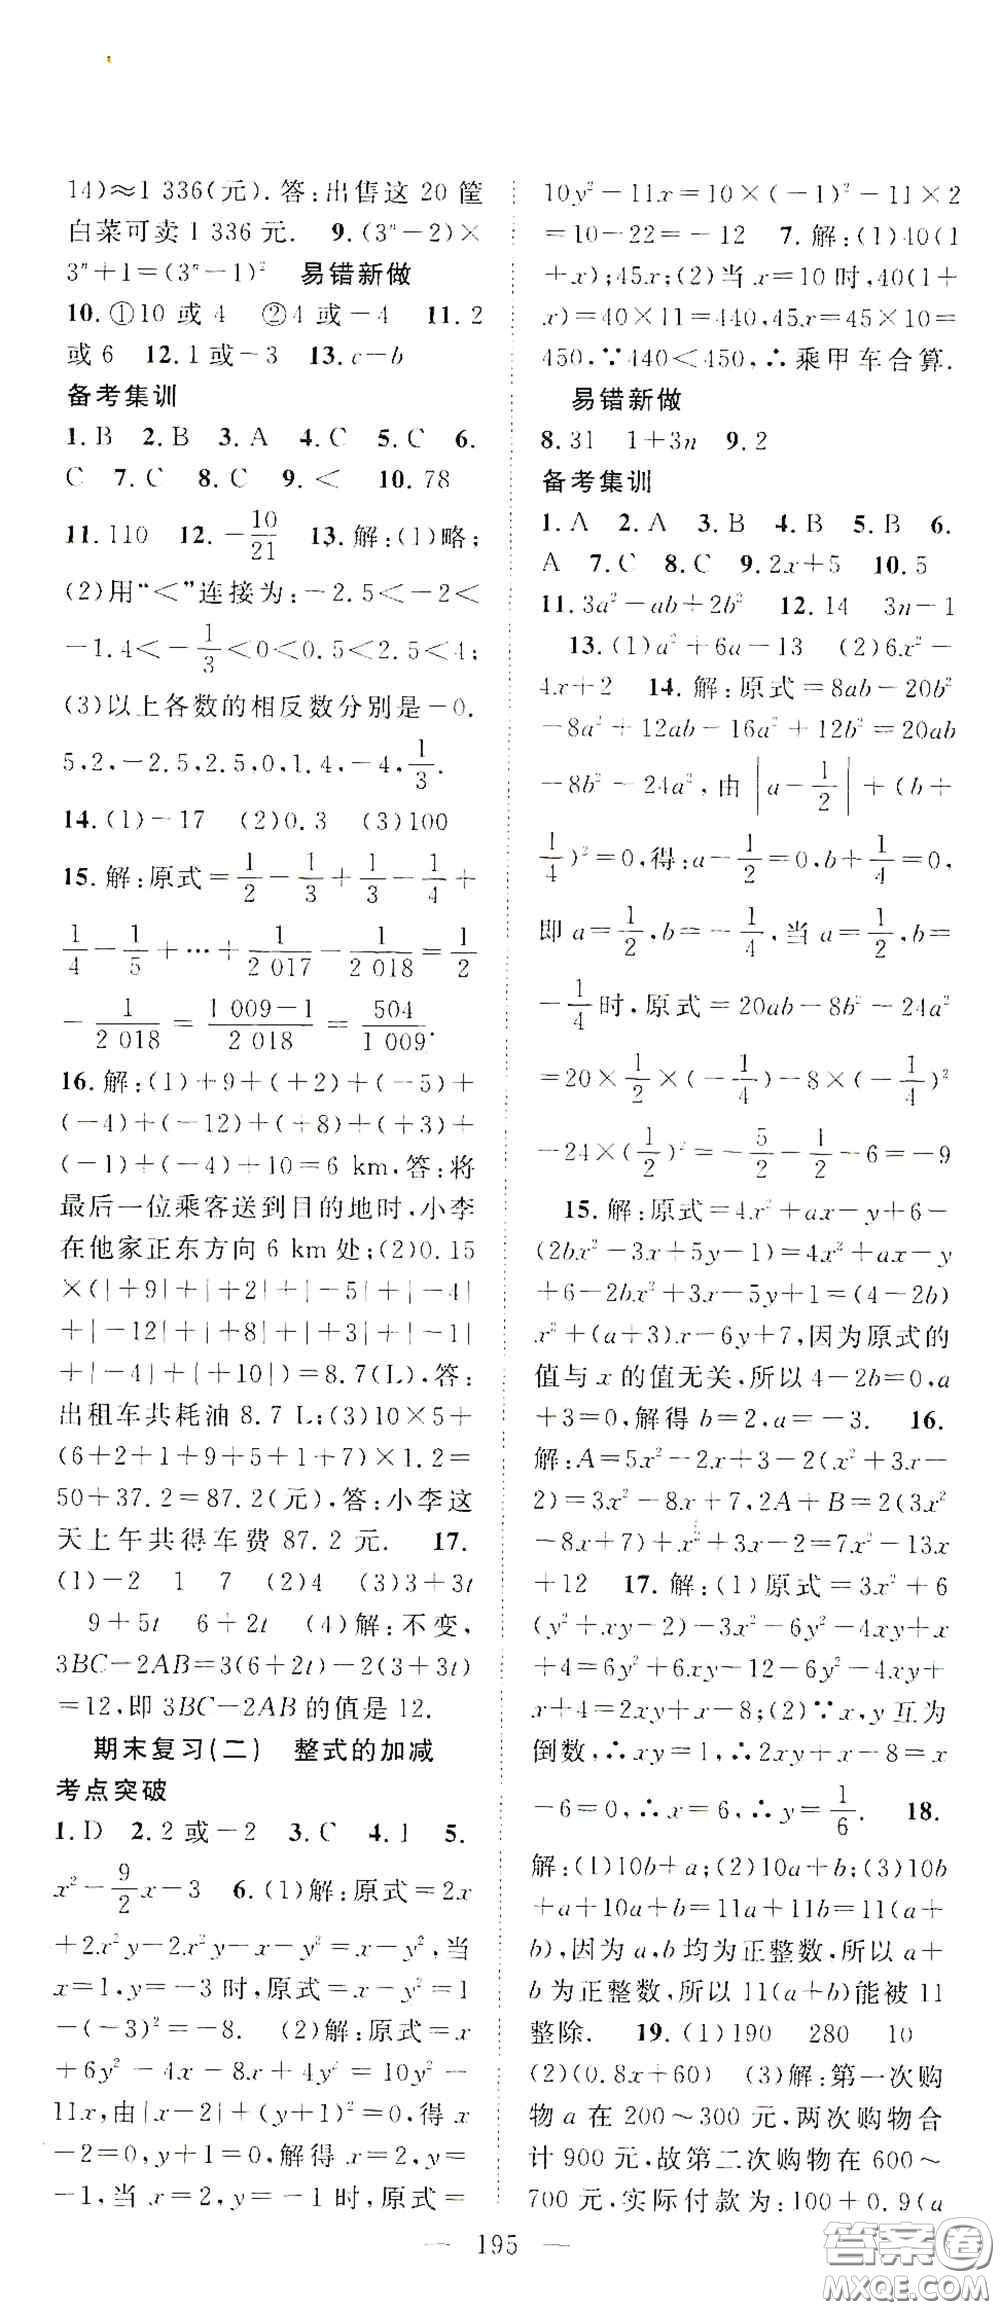 14)≈1 336(元). 答:出售这 20 筐
白菜可卖 1 336 元. 9. (3ⁿ-2)×
3ⁿ+1=(3ⁿ-1)² 易错新做
10. ①10 或 4 ②4 或-4 11. 2
或 6 12. 1 或-3 13. c-b
备考集训
1. B 2. B 3. A 4. C 5. C 6.
C 7. C 8. C 9. < 10. 78
11. 110 12. -10/21 13. 解:(1)略;
(2)用“<”连接为:-2.5<-2<
-1.4<-1/3<0<0.5<2.5<4;
(3)以上各数的相反数分别是-0.
5,2,-2.5,2.5,0,1.4,-4,1/3.
14. (1)-17 (2)0.3 (3)100
15. 解:原式=1/2-1/3+1/3-1/4+
1/4-1/5+…+1/2 017-1/2 018=1/2
-1/2 018=(1 009-1)/2 018=504/1 009.
16. 解:(1)+9+(+2)+(-5)+
(-4)+(-12)+(+8)+(+3)+
(-1)+(-4)+10=6 km, 答:将
最后一位乘客送到目的地时,小李
在他家正东方向 6 km 处;(2)0.15
×(|+9|+|+2|+|-5|+|-4|
+|-12|+|+8|+|+3|+|-1|
+|-4|+|+10|)=8.7(L). 答:
出租车共耗油 8.7 L;(3)10×5+
(6+2+1+9+5+1+7)×1.2=
50+37.2=87.2(元), 答:小李这
天上午共得车费 87.2 元. 17.
(1)-2 1 7 (2)4 (3)3+3t
9+5t 6+2t (4)解:不变,
3BC-2AB=3(6+2t)-2(3+3t)
=12,即 3BC-2AB 的值是 12.
期末复习(二) 整式的加减
考点突破
1. D 2. 2 或-2 3. C 4. 1 5.
x²-9/2x-3 6. (1)解:原式=2x
+2x²y-2x²y-x-y²=x-y²,当
x=1,y=-3 时,原式=x-y²=1
-(-3)²=-8. (2)解:原式=x
+6y²-4x-8x+4y²=10y²-
11x,由|x-2|+(y+1)²=0,得 x
-2=0,y+1=0,解得 x=2,y=
-1,当 x=2,y=-1 时,原式=
10y²-11x=10×(-1)²-11×2
=10-22=-12 7. 解:(1)40(1
+x);45x;(2)当 x=10 时,40(1
+x)=40×11=440,45x=45×10=
450,∵440<450,∴乘甲车合算.
易错新做
8. 31 1+3n 9. 2
备考集训
1. A 2. A 3. B 4. B 5. B 6.
A 7. C 8. C 9. 2x+5 10. 5
11. 3a²-ab+2b² 12. 14 3n-1
13. (1)a²+6a-13 (2)6x²-
4x+2 14. 解:原式=8ab-20b²
-8a²+12ab-16a²+12b²=20ab
-8b²-24a²,由|a-1/2|+(b+
1/4)²=0,得:a-1/2=0,b+1/4=0,
即 a=1/2,b=-1/4,当 a=1/2,b=
-1/4时,原式=20ab-8b²-24a²
=20×1/2×(-1/4)-8×(-1/4)²
-24×(1/2)²=-5/2-1/2-6=-9
15. 解:原式=4x²+ax-y+6-
(2bx²-3x+5y-1)=4x²+ax-y
+6-2bx²+3x-5y+1=(4-2b)
x²+(a+3)x-6y+7,因为原式的
值与 x 的值无关,所以 4-2b=0,a
+3=0,解得 b=2,a=-3. 16.
解:A=5x²-2x+3-2(x²+3x-
2)=3x²-8x+7,2A+B=2(3x²
-8x+7)+x²+3x-2=7x²-13x
+12 17. 解:(1)原式=3x²+6
(y²+xy-2)-3x²-6y²-4xy+x
+4=6y²+6xy-12-6y²-4xy+
x+4=2xy+x-8;(2)∵x,y 互为
倒数,∴xy=1,∴2xy+x-8=x
-6=0,∴x=6,∴y=1/6. 18.
解:(1)10b+a;(2)10a+b;(3)10b
+a+10a+b=11a+11b=11(a+
b),因为 a,b 均为正整数,所以 a+
b 为正整数,所以 11(a+b)能被 11
整除. 19. (1)190 280 10
(2)(0.8x+60) (3)解:第一次购
物 a 在 200~300 元,两次购物合
计 900 元,故第二次购物在 600~
700 元,实际付款为:100+0.9(a
— 195 —
答案圈
MXQE.COM